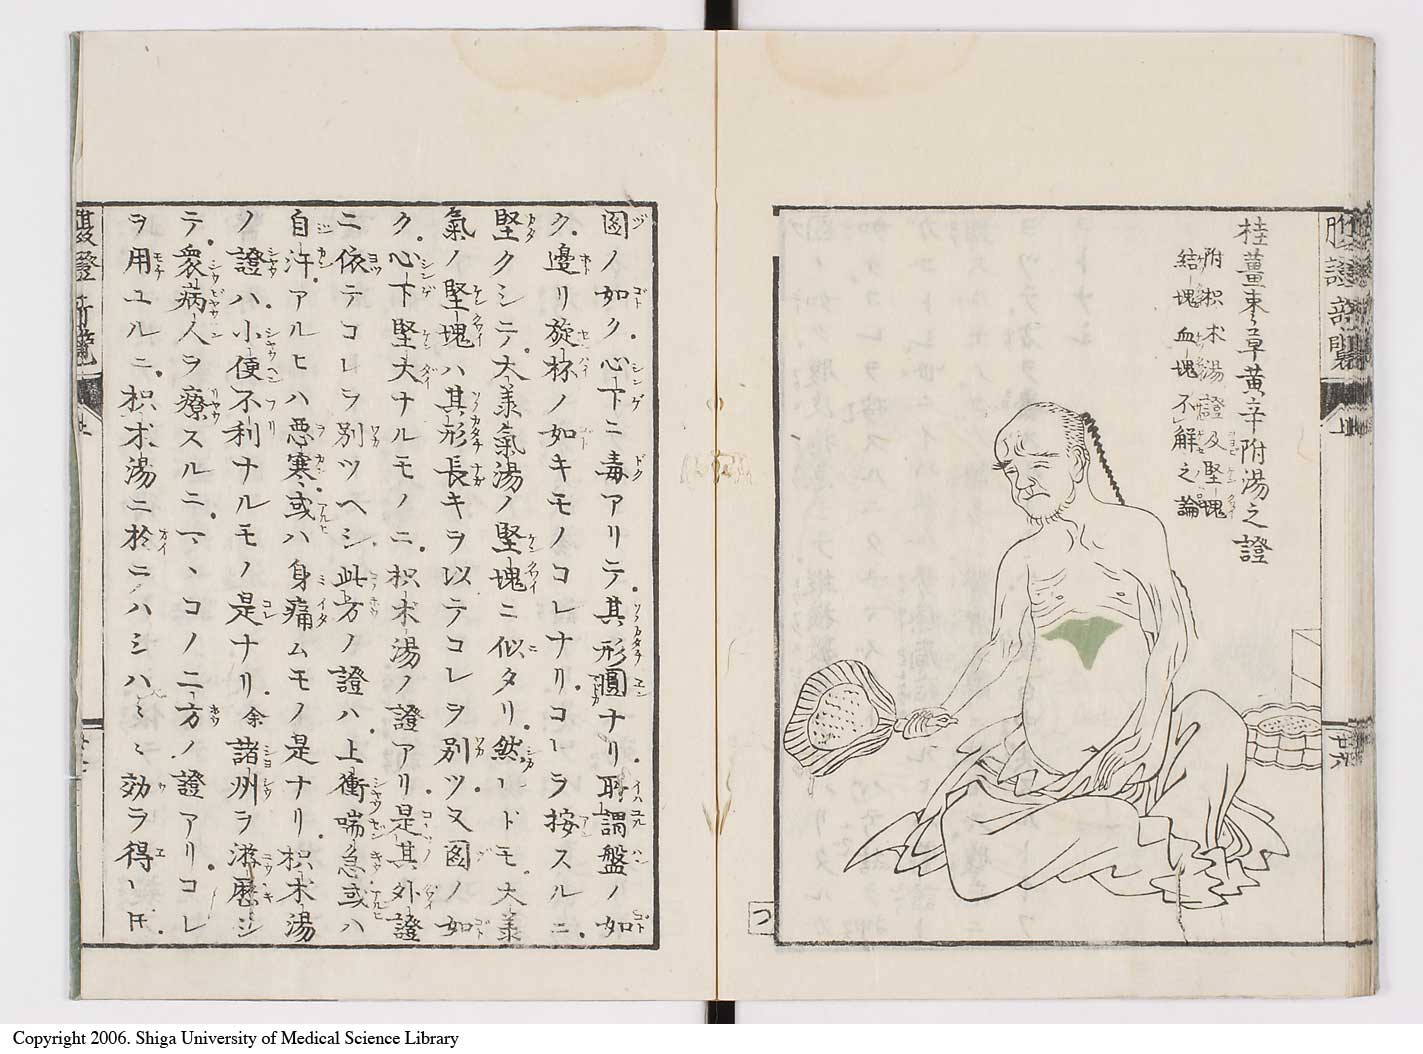 桂薑棗草黄辛附湯之證
附枳朮湯證及堅塊
結塊血塊不解之論
腹證奇覽
上
廿六
圖ノ如ク心下ニ毒アリテ其形圓ナリ所謂盤ノ如
ク邊リ旋杯ノ如キモノコレナリコレヲ按スルニ
堅クシテ大承氣湯ノ堅塊ニ似タリ然レドモ大承
氣ノ堅塊ハ其形長キヲ以テコレヲ別ツ又圖ノ如
ク心下堅大ナルモノニ枳朮湯ノ證アリ是其外證
ニ依テコレヲ別ツヘシ此方ノ證ハ上衝喘急或ハ
自汗アルヒハ悪寒或ハ身痛ムモノ是ナリ枳朮湯
ノ證ハ小便不利ナルモノ是ナリ余諸州ヲ游歴シ
テ衆病人ヲ療スルニマヽコノ二方ノ證アリコレ
ヲ用ユルニ枳朮湯ニ於ニハシハ〻效ヲ得レ𪜈
腹證奇覽
上
Copyright 2006. Shiga University of Medical Science Library